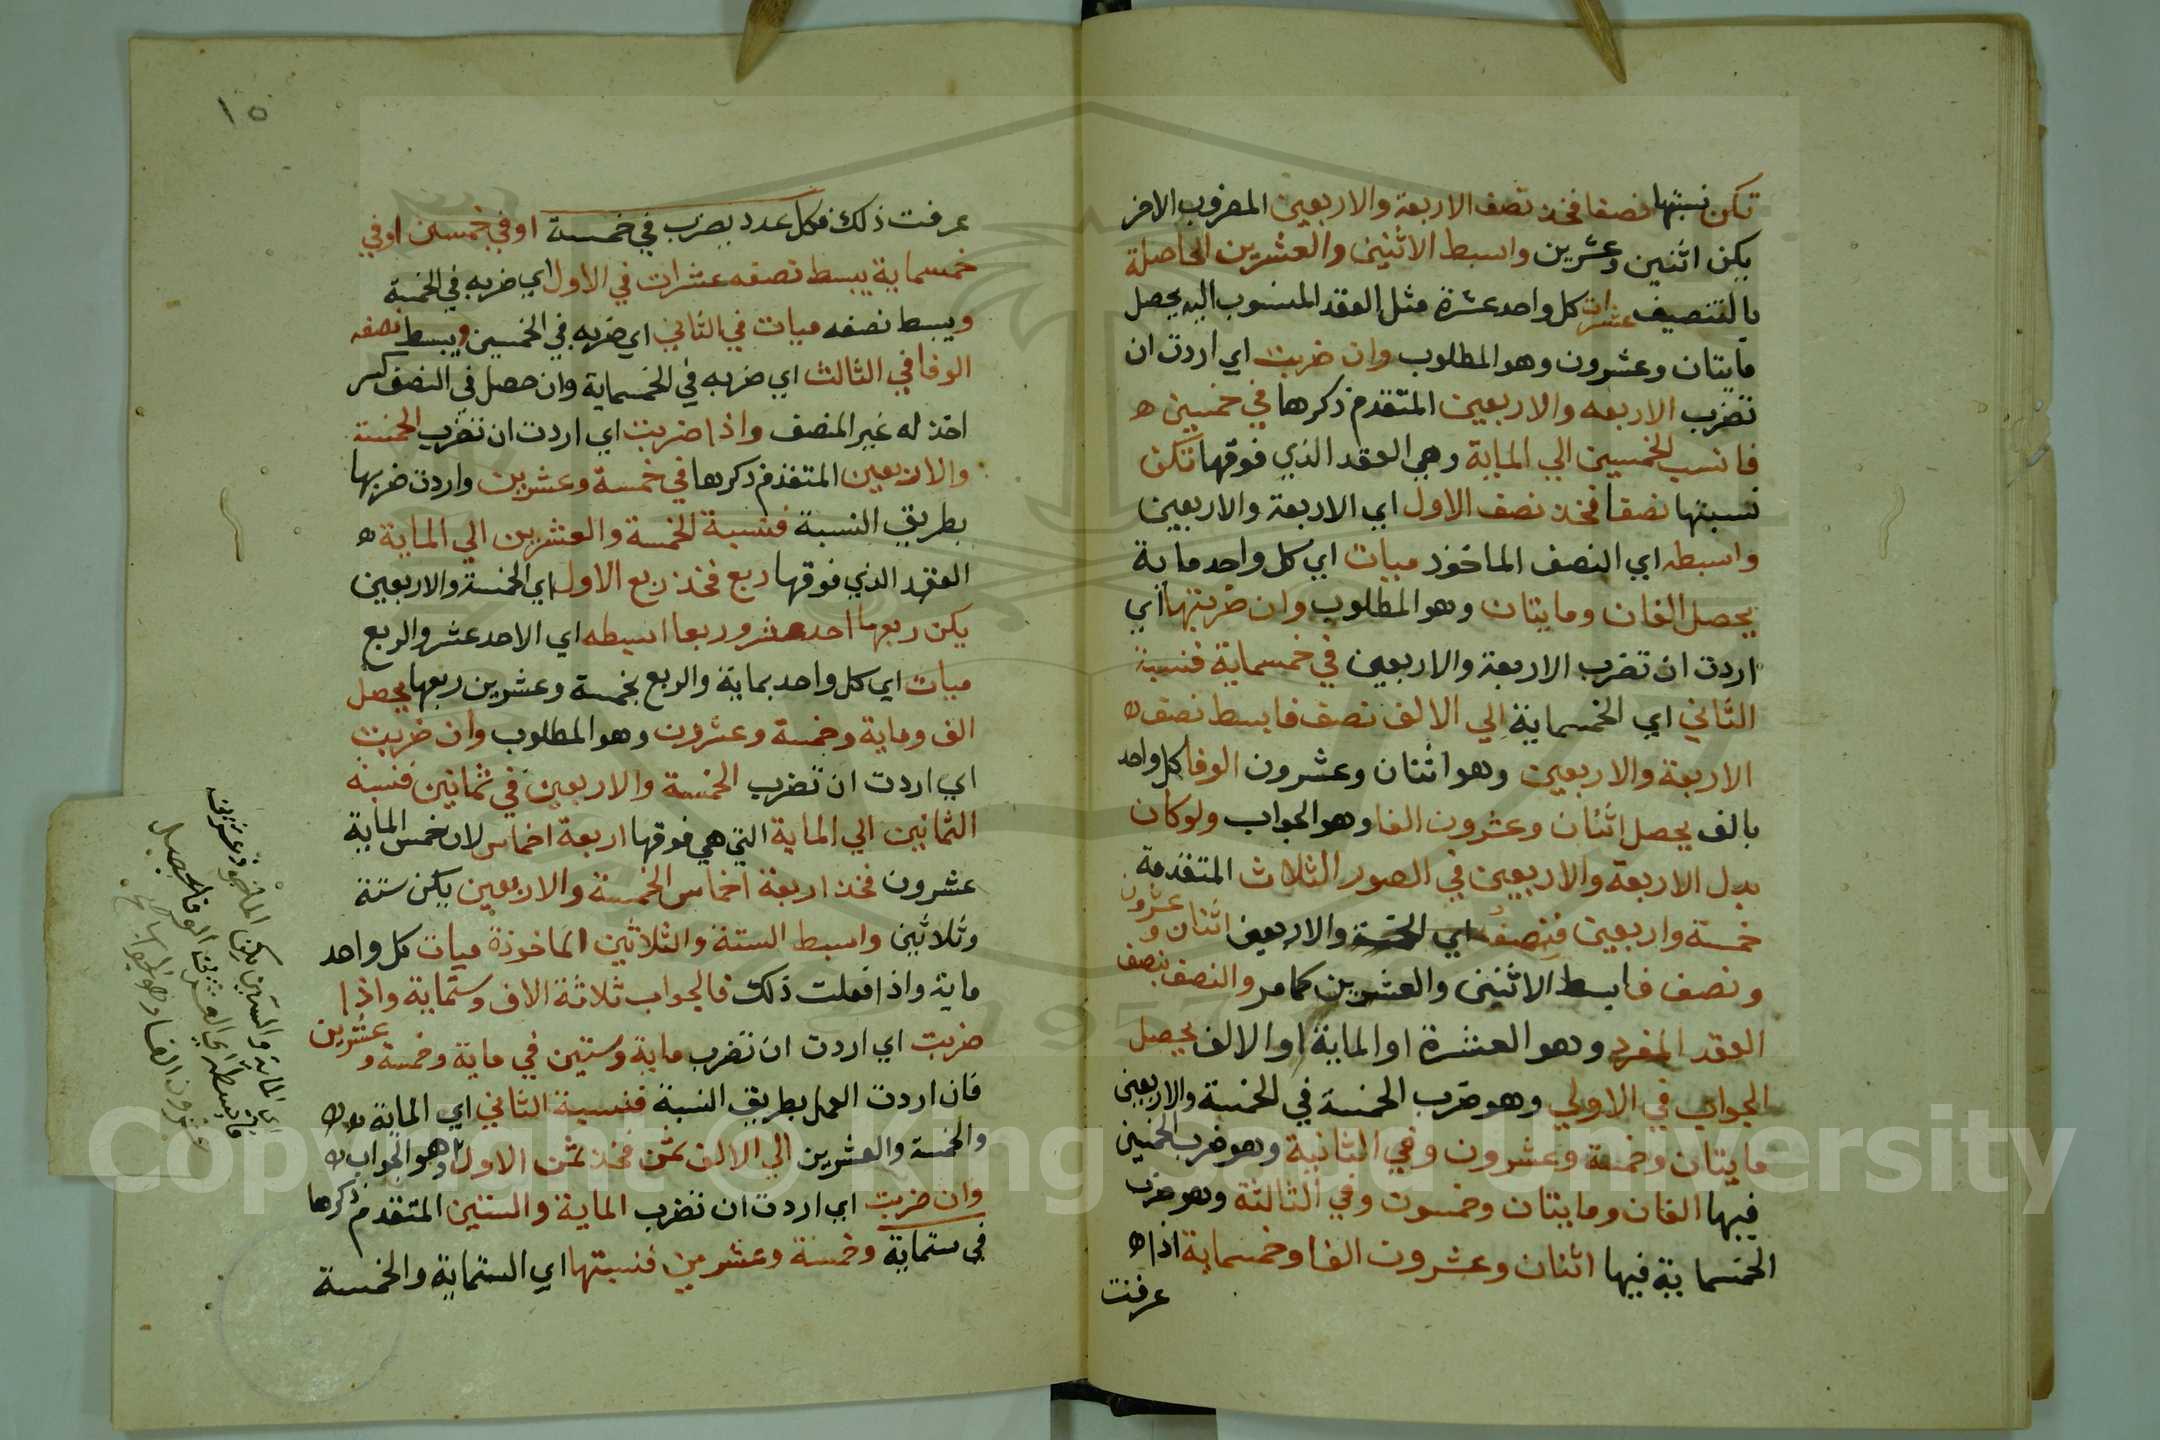 تكن نسبتها نصفا فخذ نصف الاربعة والاربعين المضروب الاخر
يكن اثنين وعشرين وابسط الاثنين والعشرين الحاصلة
بالتنصيف عشرات كل واحد عشرة مثل العقد المنسوب اليه يحصل
مايتان وعشرون وهو المطلوب وان ضربت اي اردت ان
تضرب الاربعه والاربعين المتقدم ذكرها في خمسين ه
فانسب الخمسين الي الماية وهي العقد الذي فوقها تكن
نسبتها نصفا فخذ نصف الاول اي الاربعة والاربعين
وابسطه اي النصف الماخوذ ميات اي كل واحد ماية
يحصل الفان ومايتان وهو المطلوب وان ضربتها اي
اردت ان تضرب الاربعة والاربعين في خمسماية فنسبة
الثاني اي الخمسماية الي الالف نصف فابسط نصف ه
الاربعة والاربعين وهو اثنان وعشرون الوفا كل واحد
بالف يحصل اثنان وعشرون الفا وهو الجواب ولو كان
بدل الاربعة والاربعين في الصور الثلاث المتقدمة
خمسة واربعين فنصفه اي الخمسة والاربعين اثنان وعشرون
ونصف فابسط الاثنين والعشرين كما مر والنصف بنصف
العقد المفرد وهو العشرة او الماية او الالف يحصل
الجواب في الاولي وهو ضرب الخمسة في الخمسة والاربعين
مايتان وخمسة وعشرون وفي الثانية وهو ضرب الخمسين
فيها الفان ومايتان وخمسون وفي الثالثة وهو ضرب
الخمسماية فيها اثنان وعشرون الفا وخمسماية اذا ه
عرفت
١٥
عرفت ذلك فكل عدد يضرب في خمسة او في خمسين او في
خمسماية يبسط نصفه عشرات في الاول اي ضربه في الخمسة
ويبسط نصفه ميات في الثاني اي ضربه في الخمسين ويبسط نصفه
الوفا في الثالث اي ضربه في الخمسماية وان حصل في النصف كسر
اخذ له غير المنصف واذا ضربت اي اردت ان تضرب الخمسة
والاربعين المتقدم ذكرها في خمسة وعشرين واردت ضربها
بطريق النسبة فنسبة الخمسة والعشرين الي الماية ه
العقد الذي فوقها ربع فخذ ربع الاول اي الخمسة والاربعين
يكن ربعها احد عشر وربعا ابسطه اي الاحد عشر والربع
ميات اي كل واحد بماية والربع بخمسة وعشرين ربعها يحصل
الف وماية وخمسة وعشرون وهو المطلوب وان ضربت
اي اردت ان تضرب الخمسة والاربعين في ثمانين فنسبة
الثمانين الي الماية التي هي فوقها اربعة اخماس لان خمس الماية
عشرون فخذ اربعة اخماس الخمسة والاربعين يكن ستة
وثلاثين وابسط الستة والثلاثين الماخوذة ميات كل واحد
ماية واذا فعلت ذلك فالجواب ثلاثة الاف وستماية واذا
ضربت اي اردت ان تضرب ماية وستين في ماية وخمسة وعشرين
فان اردت العمل بطريق النسبة فنسبة الثاني اي الماية
والخمسة والعشرين الي الالف ثمن فخذ ثمن الاول وهو الجواب
وان ضربت اي اردت ان تضرب الماية والستين المتقدم ذكرها
في ستماية وخمسة وعشرين فنسبتها اي الستماية والخمسة
اي الماية والستين يكن الماخوذ عشرين
فابسطه اي العشرين الوفا يحصل
عشرون الفا وهو الجواب
Copyright © King Saud University
1957